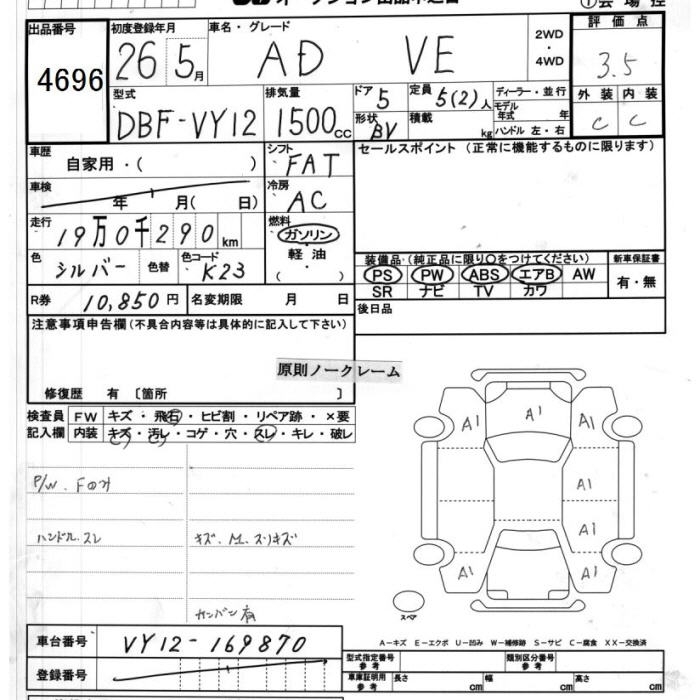 出品番号 4696
初度登録年月 26 5月
車名・グレード AD VE
2WD ・ 4WD
評価点 3.5
外装 内装
C C
型式 DBF-VY12
排気量 1500cc
ドア 5
形状 BV
定員 5(2)人
積載 kg
ディーラー・並行
モデル年式 年
ハンドル 左・右
車歴 自家用・( )
シフト FAT
セールスポイント (正常に機能するものに限ります)
車検 年 月( 日)
冷房 AC
走行 19万0千290km
燃料 ガソリン・軽油・( )
色 シルバー 色替 色コード K23
装備品・(純正品に限り○をつけてください)
PS PW ABS エアB AW
SR ナビ TV カワ
新車保証書 有・無
R券 10,850円 名変期限 月 日
後日品
注意事項申告欄(不具合内容等は具体的に記入して下さい)
原則ノークレーム
修復歴 有 〔箇所 〕
検査員記入欄
FW キズ・飛石・ヒビ割・リペア跡・×要
内装 キズ・汚レ・コゲ・穴・スレ・キレ・破レ
P/W、Fのみ
ハンドル スレ
キズ、M、スリキズ
カンバン有
A1 A1 A1
A1
A1
A1 A1
スペア
A-キズ E-エクボ U-凹み W-補修跡 S-サビ C-腐食 XX-交換済
車台番号 VY12-169870
登録番号
型式指定番号 参考
類別区分番号 参考
車庫証明用 参考 長さ cm 幅 cm 高さ cm